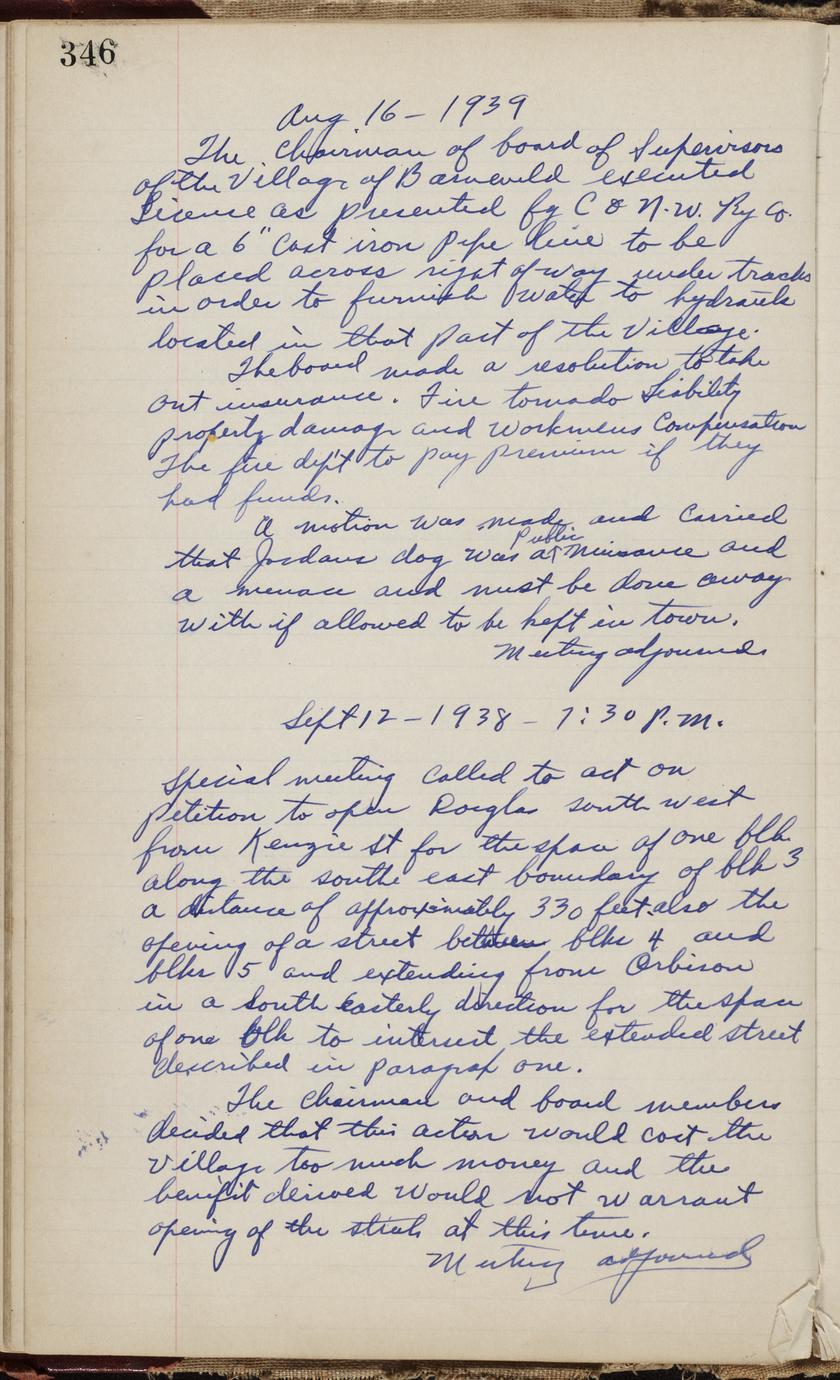 346
Aug 16 - 1939
The Chairman of board of Supervisors
of the Village of Barneveld executed
License as presented by C & N.W. Ry Co.
for a 6" Cast iron pipe line to be
placed across right of way under tracks
in order to furnish water to hydrants
located in that part of the Village.
The board made a resolution to take
out insurance. Fire tornado Liability
property damage and Workmens Compensation
The fire dep't to pay premium if they
had funds.
A motion was made and Carried
Public
that Jordans dog was a Nuisance and
a menace and must be done away
with if allowed to be kept in town.
Meeting adjourned.
Sept 12 - 1938 - 7:30 P.M.
Special meeting Called to act on
Petition to open Douglas south west
from Kenzie St for the space of one blk
along the south east boundary of blk 3
a distance of approximately 330 feet. also the
opening of a street between blks 4 and
blks 5 and extending from Orbison
in a South easterly direction for the space
of one blk to intersect the extended street
described in Paragraf one.
The Chairman and board members
decided that this action would cost the
Village too much money and the
benifit derived would not warrant
opening of the at this time.
Meeting adjourned